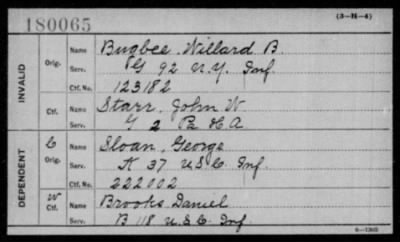 180065 (3-H-4)
INVALID Orig. Name Bugbee, Willard B.
Serv. G 92 N.Y. Inf.
Ctf. No. 123182
Ctf. Name Starr, John W
Serv. G 2 Pa H A
DEPENDENT C Orig. Name Sloan, George
Serv. K 37 U.S.C. Inf.
Ctf. No. 222002
W Ctf. Name Brooks Daniel
Serv. B 118 U.S.C. Inf